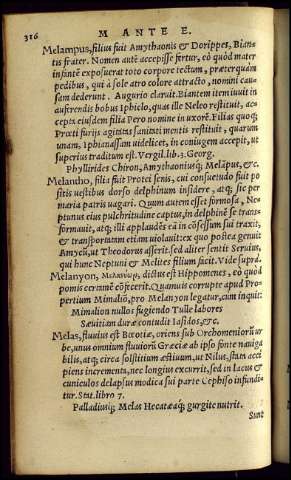 316 M ANTE E.
Melampus, filius fuit Amythaonis & Dorippes, Bian-
tis frater. Nomen autē accepisse fertur, eò quòd mater
infantē exposuerat toto corpore tectum, præterquàm
pedibus, qui à sole atro colore attracto, nomini cau-
sam dederunt. Augurio claruit. Biantem item iuuit in
auferendis bobus Iphiclo, quas ille Neleo restituit, ac-
cepta eiusdem filia Pero nomine in uxorē. Filias quoq;
Prœti furijs agitatas sanitati mentis restituit, quarum
unam, Iphianassam uidelicet, in coniugem accepit, ut
superius traditum est. Vergil. lib. 3. Georg.
Phyllirides Chiron, Amythaoniusq́; Melāpus, &c.
Melantho, filia fuit Protei senis, cui consuetudo fuit po
sitis uestibus dorso delphinum insidere, atq; sic per
maria patris uagari. Quum autem esset formosa, Ne-
ptunus eius pulchritudine captus, in delphinē se trans-
formauit, atq; illi applaudēs eā in cōsessum sui traxit,
& transportatam etiam uiolauit: ex quo postea genuit
Amycū, ut Theodorus asserit. sed aliter sentit Seruius,
qui hunc Neptuni & Melites filium facit. Vide suprà.
Melanyon, dictus est Hippomenes, eò quòd
pomis cerneret cōficeret. Quamuis corruptè apud Pro-
pertium Mimaliō, pro Melanyon legatur, cum inquit:
Mimalion nullos fugiendo Tulle labores
Sæuitiam duræ contudit Iasidos, &c.
Melas, fluuius est Bœotiæ, oriens sub Orchomeniorū ur
be, unus omnium fluuiorū Græciæ ab ipso fonte nauiga
bilis, atq; circa solstitium æstiuum, ut Nilus, statim acci
piens incrementa, nec longius excurrit, sed in lacus &
cuniculos delapsus modica sui parte Cephiso infundi-
tur. Stat. libro 7.
Palladiumq́; Melas Hecatææq́; gurgite nutrit.
Sunt